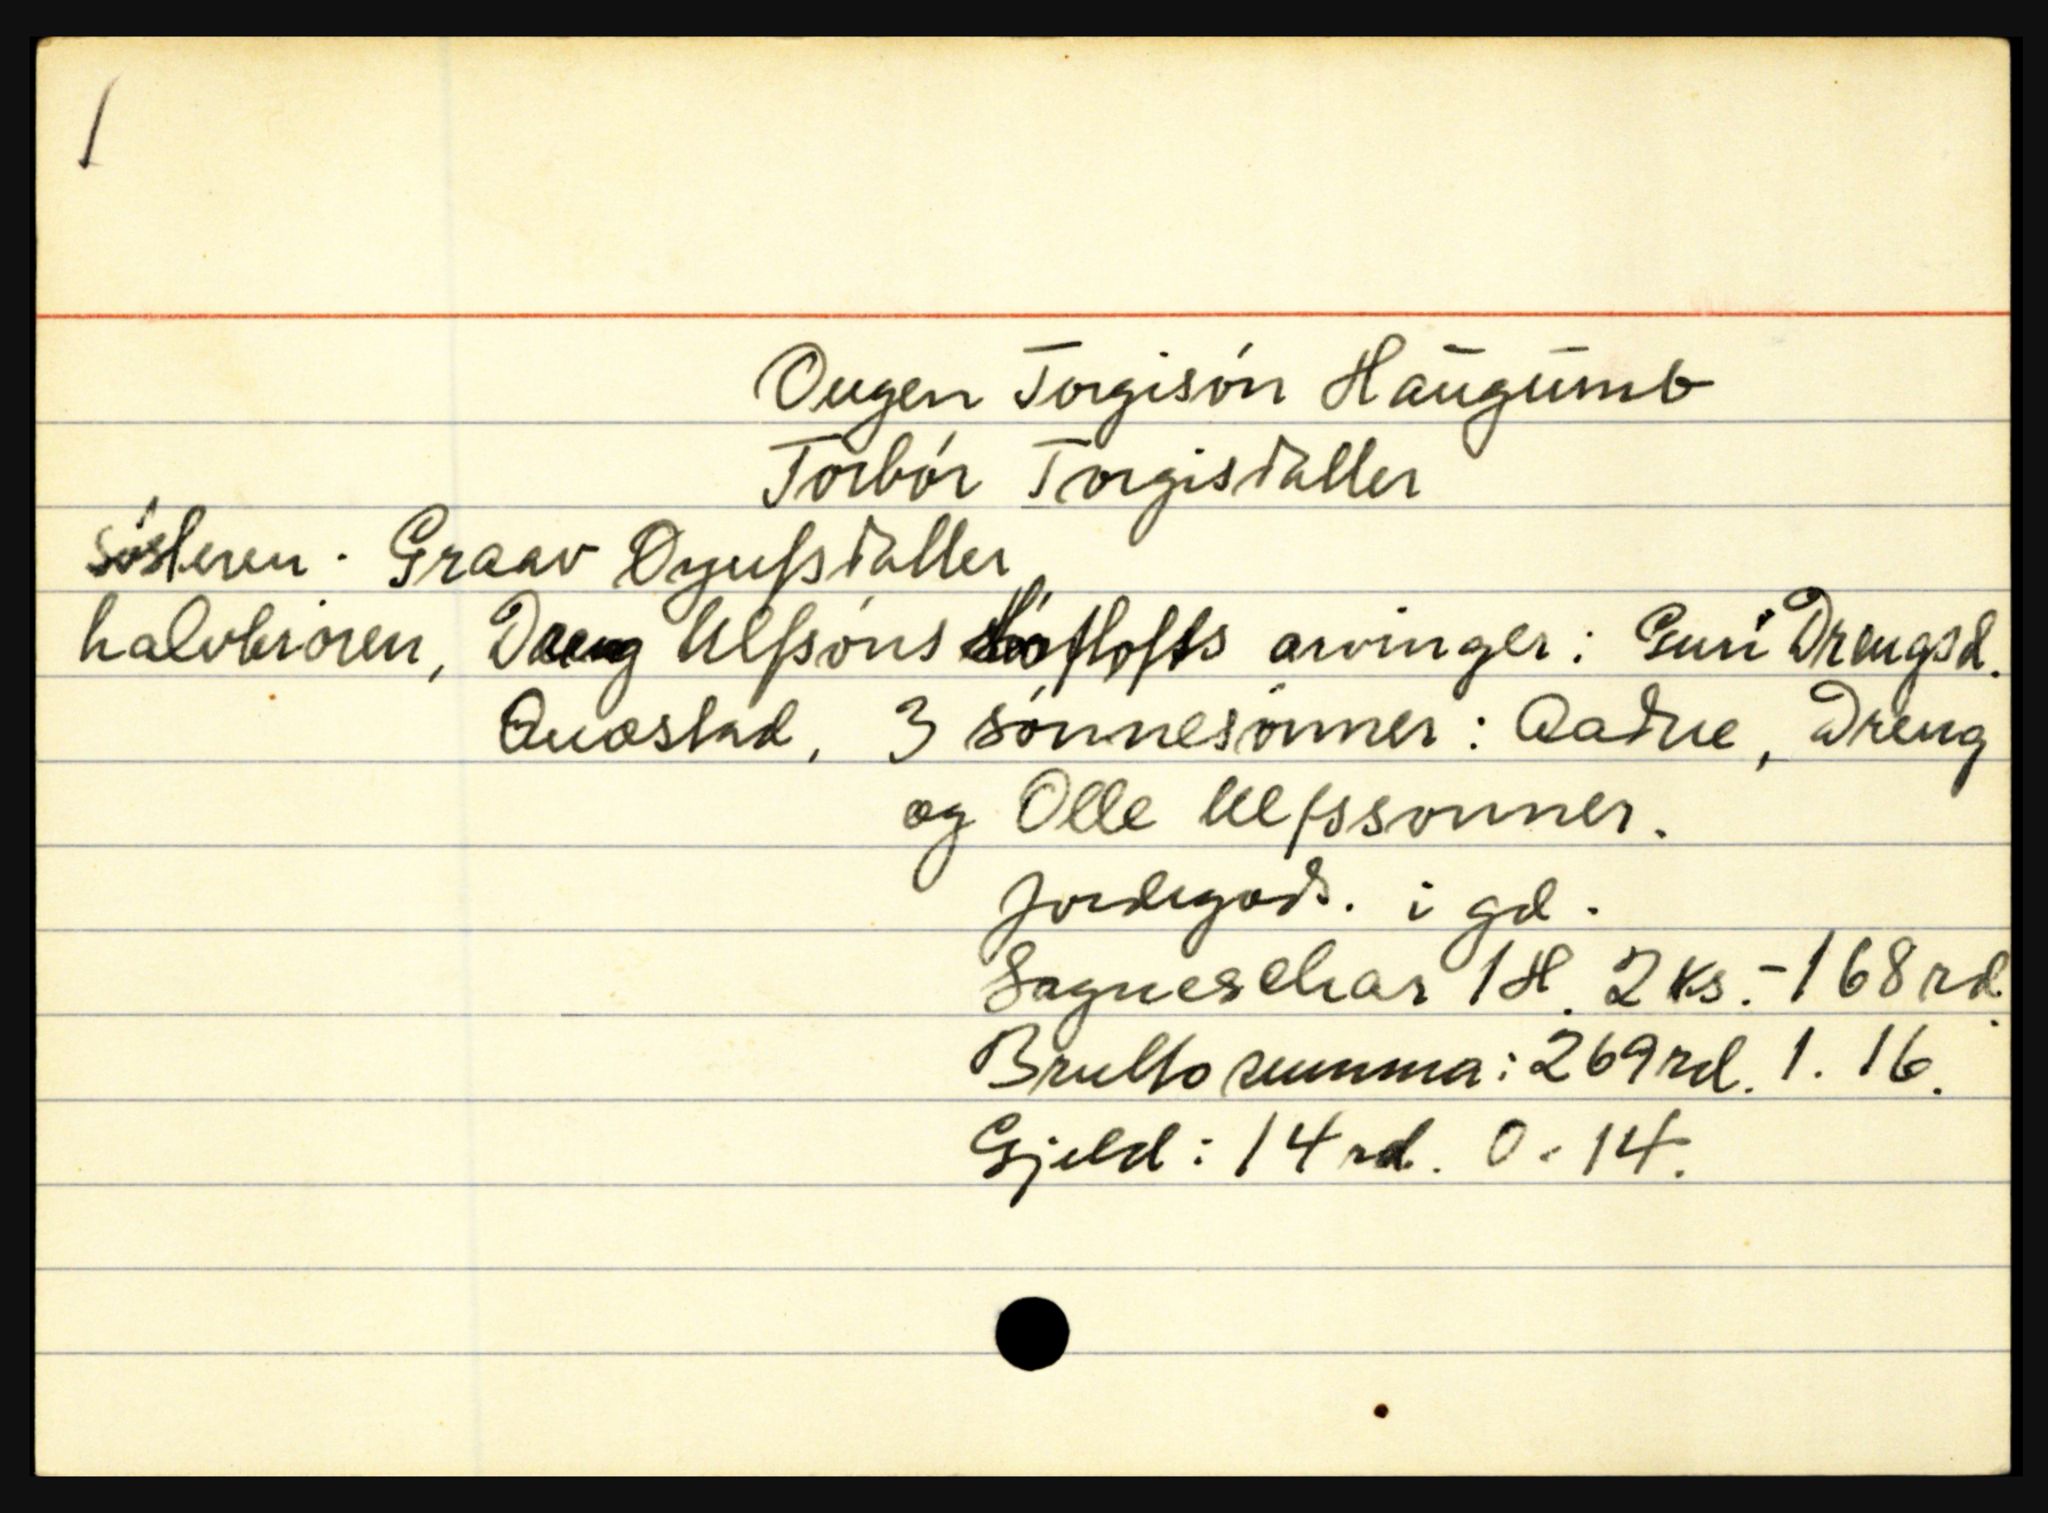 1
Ougen Torgisón Haugumb
Torbór Torgisdatter
Sósteren. Graav Oyufsdatter
halvbróren, Dreng Ulfsóns arvinger: Guri Drengsd.
Quastad, 3 sónnesónner: Aadne, Dreng
og Olle Ulfssonner.
Jordegods. i gd.
Sagneschar 1 H. 2 ks. - 168 rd.
Brutto summa: 269 rd. 1. 16.
Gjeld: 14 rd. 0. 14.